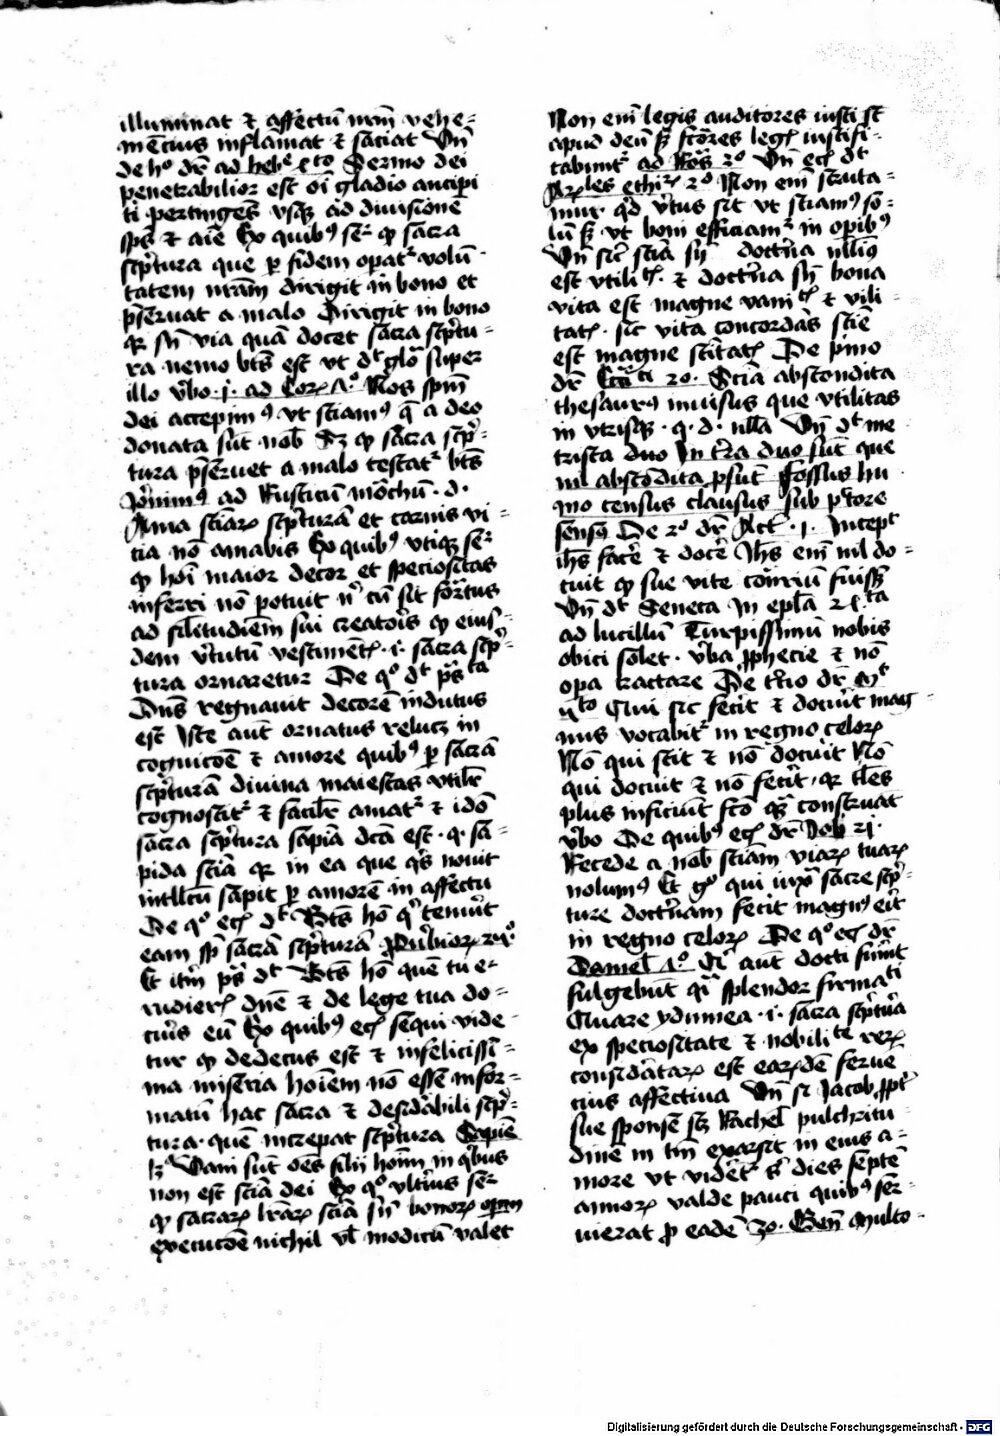 illuminat et affectū nrm̄ vehe-
mēcius inflamat et saciat Vn̄
de hº dr̄ ad hebᵉ 4ᵗᵒ Sermo dei
penetrabilior est oī gladio ancipi
ti pertingēs vsqꝫ ad diuisionē
sps̄ et aīe Ex quibꝰ seꝛ ꝙ sacra
scptura que ꝑ fidem opatꝛ volū
tatem nrām dirigit in bono et
pseruat a malo Dirigit in bono
qꝛ sn̄ via quā docet sacra scptu-
ra nemo bts̄ est vt dt glō super
illo vbo ·i· ad Coꝝ 2º Nos spm̄
dei accepimꝰ vt sciamꝰ q̄ a deo
donata sūt nob̄ Sꝫ ꝙ sacra scp-
tura pseruet a malo testatꝛ bts̄
Jeronimꝰ ad Rusticū mōchū · d ·
Ama sciaꝝ scpturaꝝ et carnis vi-
cia nō amabis Ex quibꝰ vtiqꝫ seꝛ
ꝙ hoī maior decor et speciositas
inferri nō potuit nͥ cū sit formatus
ad silitudiēm sui creatoris ꝙ eius-
dem vtutū vestimētꝭ ·i· sacra scp-
tura ornaretur De qº dt psᵗᵃ
Dn̄s regnauit decorē indutus
est Iste aūt ornatus relucꝫ in
cognicōe et amore quibꝰ ꝑ sacrā
scpturā diuina maiestas vtilr̄
cognoscitꝛ et facilr̄ amatꝛ et idō
sacra scptura sapīa dcā est · q · sa-
pida sciā qꝛ in ea que qs nouit
intllcū sapit ꝑ amorē in affectu
De qº ecꝭ dt Bts̄ hō qͥ inuēit
eam sp̄ sacrā scpturā Puerbioꝝ
Et itm̄ ps̄ dt Bts̄ hō quē tu e-
rudierꝭ dn̄e et de lege tua do-
cuis eū Ex quibꝰ ecꝭ sequi vide
tur ꝙ dedecus est et infelicissi-
ma miseria hoīem nō esse infor-
matū hac sacra et desidabili scp-
tura · quē increpat scptura Sapiē
Vani sūt oēs filii hoīm in qbus
non est sciā dei Ex qº vltius seꝛ
ꝙ sacraꝝ lrāꝝ sciā sn̄ bonoꝝ opum
execucōe nichil vl̄ modicū valet
Non em̄ legis auditores iusti st̄
apud deū sꝫ fcōres legꝭ iustifi-
cabuntꝛ ad Roͫs 2º Vn̄ ecꝭ dt
Arꝭles ethiꝝ 2º Non em̄ scruta-
mur qd vtus sit vt sciamꝰ so-
lū sꝫ vt boni efficiamꝛ in opibꝰ
Vn̄ sicꝛ sciā sn̄ doctna nulliꝰ
est vtilitꝭ · et doctna sn̄ bona
vita est magne vanitꝭ et vili-
tatꝭ · sic vita concordās scīe
est magne scitatꝭ De pmo
dr̄ Ecciᶜⁱ 20 · Sciā abscondita
thesaurꝰ inuisus que vtilitas
in vtrisqꝫ · q · d · nulla Vn̄ dt me
trista duo In tra duo sūt que
nil abscondita psūt Fossus hu
mo census clausus sub pctore
sensꝰ De 2º dr̄ Actꝭ ·i· Incepit
ihs̄ facē et docē Ihs̄ em̄ nil do-
cuit ꝙ sue vite cōtriū fuissꝫ
Vn̄ dt Seneca In epla
ad lucillū Turpissimū nobis
obici solet · vba phiē et nō
opa tractare De tcio dr̄ Mᵗ
vᵗᵒ Qui sic fecit et docuit mag
nus vocabitꝛ in regno celoꝝ
Nō qui scit et nō docuit Nō
qui docuit et nō fecit · qꝛ tles
plus inficiūt fcō qꝫ construāt
vbo De quibꝰ ecꝭ dr̄ Job 21 ·
Recede a nob̄ sciām viaꝝ tuaꝝ
nolumꝰ Et gº qui iuxᵃ sacre scp-
ture doctnam fecit magnꝰ eit
in regno celoꝝ De qº ecꝭ dr̄
Daniel 12º Qi aūt docti fuint
fulgebūt qͥ splendor firmaᵗⁱ
Quare ydumea ·i· sacra scptura
ex speciositate et nobiliᵗᵉ reꝝ
consideataꝝ est eaꝝdē ferue
cius affectiua Vn̄ si Jacob ppt
sue sponsē scꝫ Rachel pulchritu-
dinē in tm̄ exarsit in eius a-
more vt videntꝛ sͥ dies septē
annoꝝ valde pauci quibꝰ ser-
uierat ꝓ eadē · Gen̄ Multo-
Digitalisierung gefördert durch die Deutsche Forschungsgemeinschaft - DFG